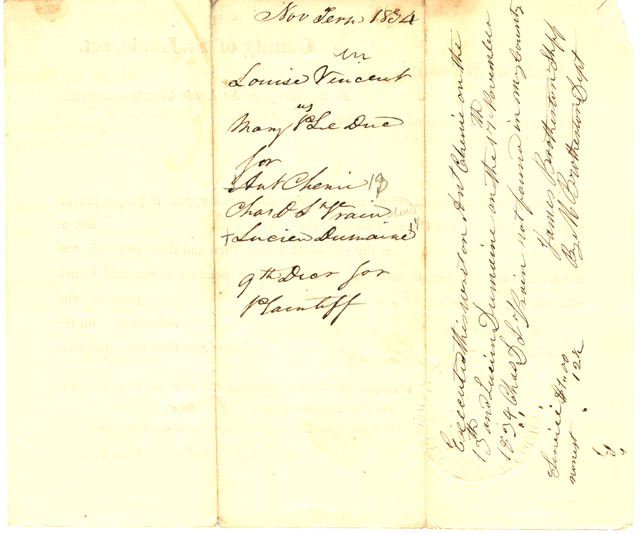 Nov Term 1834
Louise Vincent
vs
Mary P Le Duc
for
Ant Chenie 13
Chas D St Vrain
+ Lucien Dumaine 12
9th Decr for
Plaintiff
Executed this writ on Ant Chenie on the
13th and Lucien Dumaine on the 17th November
1834 Chas D St Vrain not found in my County
James Brotherton Shff
By M Brotherton Dept
Service $1.00
nonest " 12½